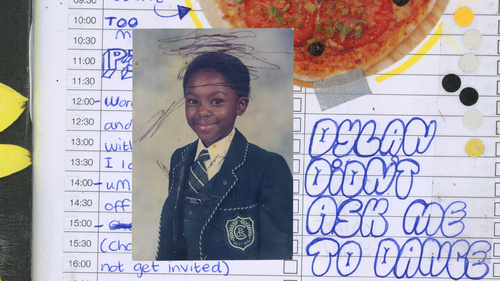 09:30
10:00 TOO
10:30
11:00
11:30
12:00
12:30 and
13:00
13:30 I
14:00 – um
14:30 off
15:00 –
15:30
16:00 not get invited)
DYLAN
DIDN'T
ASK ME
TO DANCE